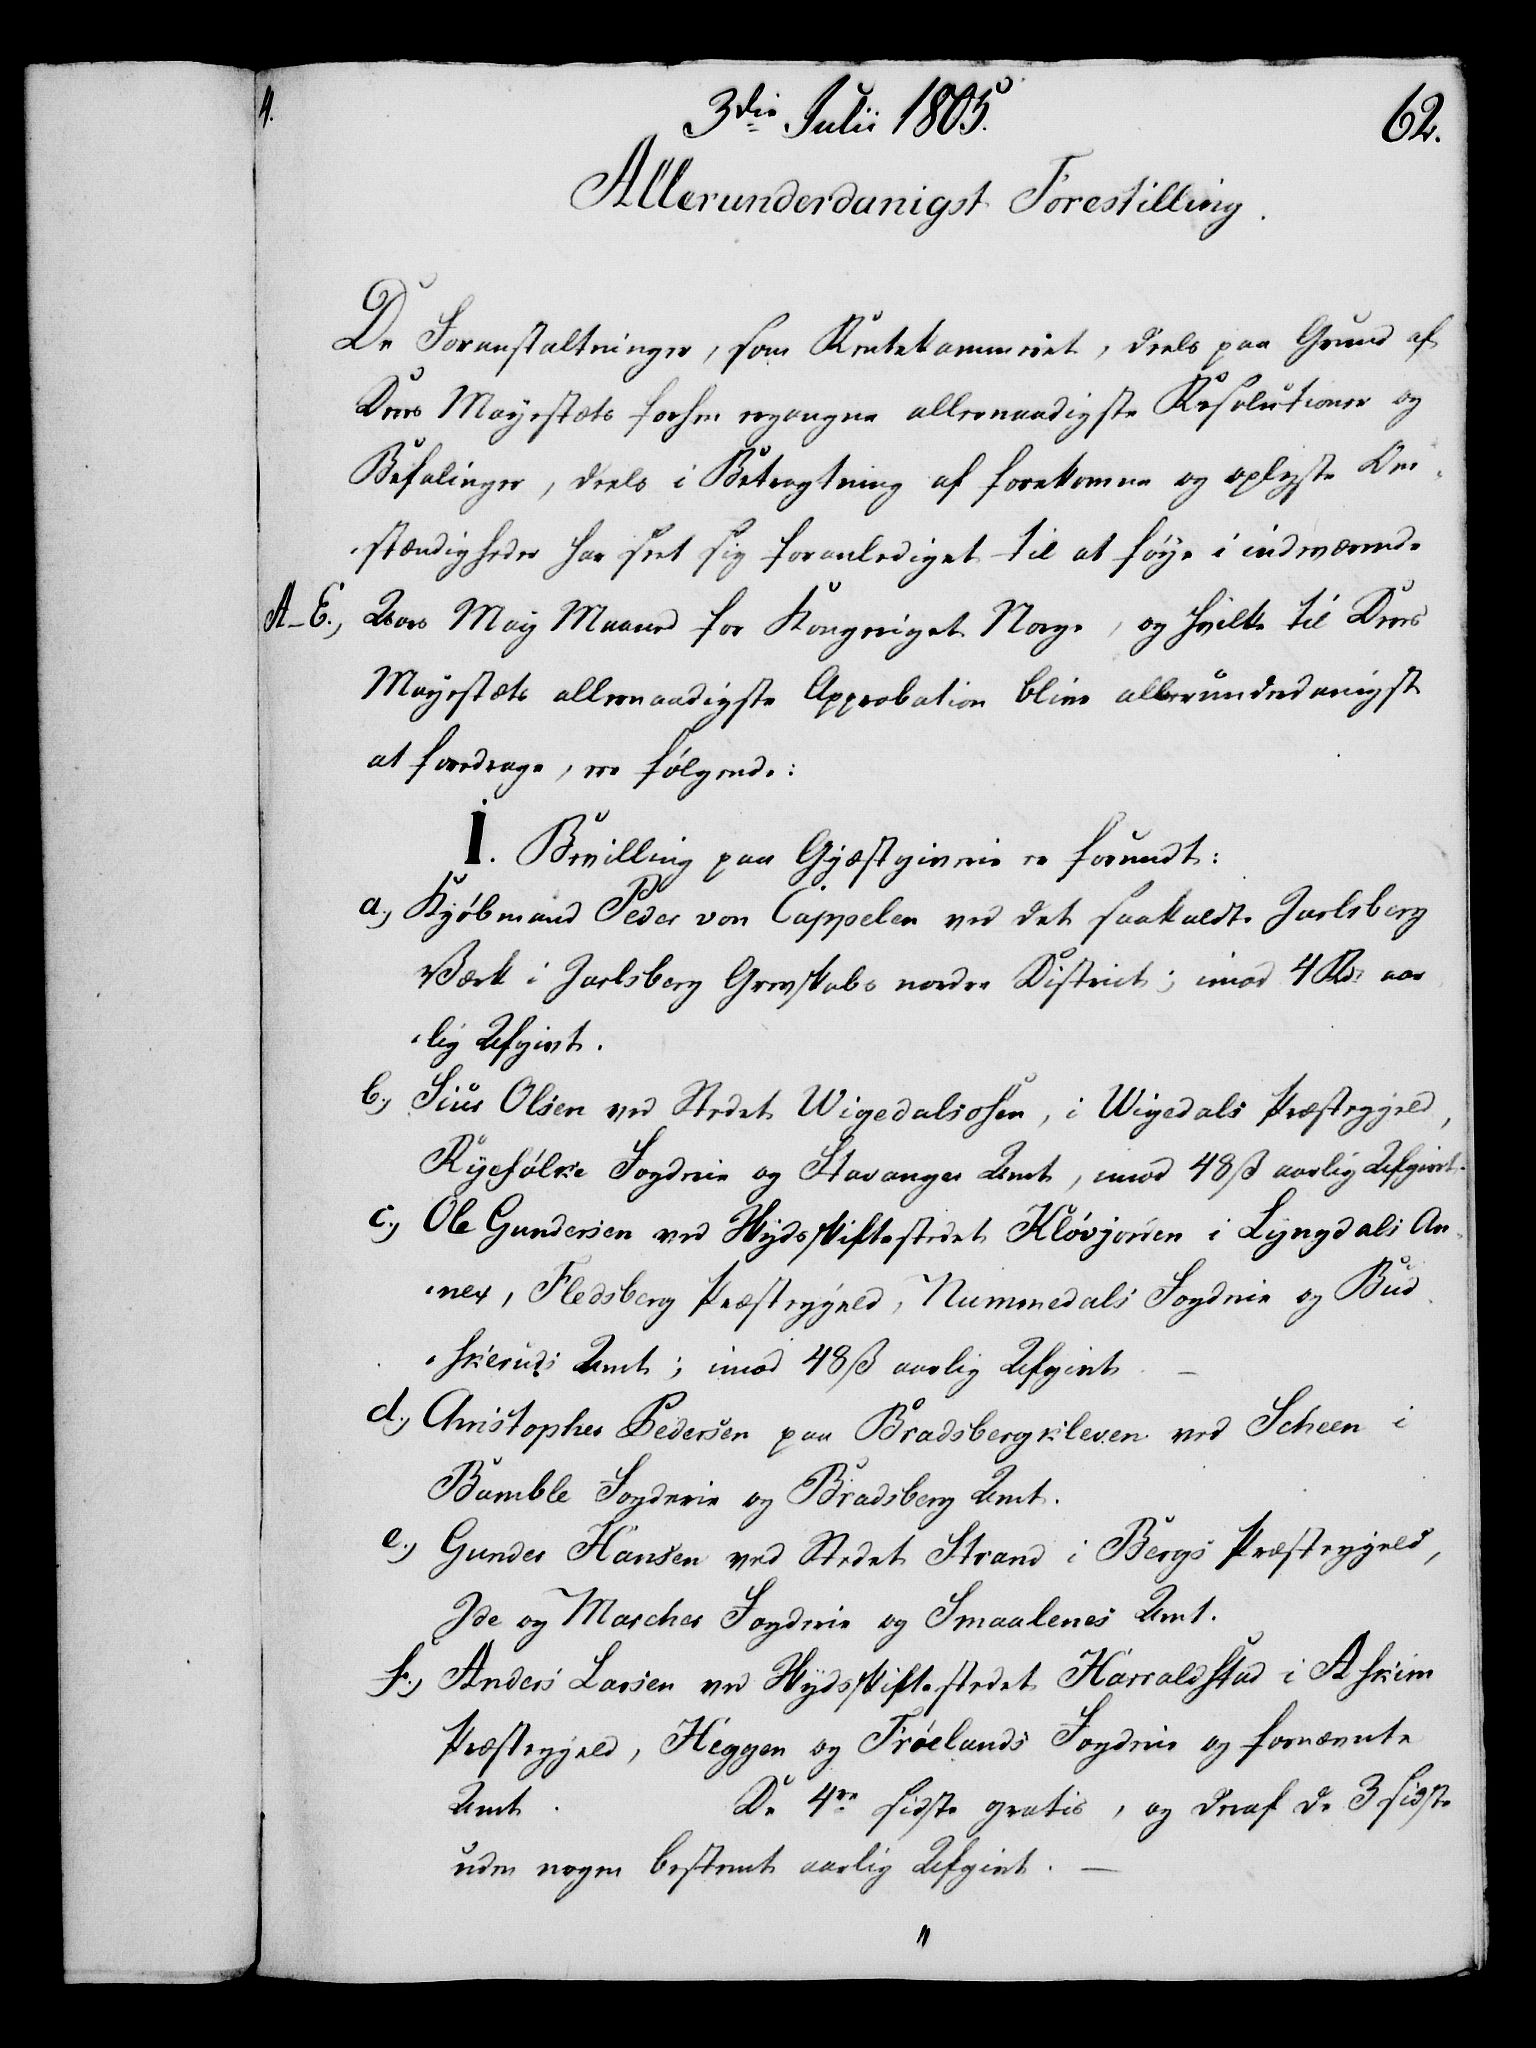 4.
3die Julii 1805.
62.
Allerunderdanigst Forestilling.
De Foranstaltninger, som Rentekammeret, deels paa Grund af
Deres Mayestæts forhen ergangne allernaadigste Resolutioner og
Befalinger, deels i Betragtning af forekomne og oplyste Om-
stændigheder har seet sig foranlediget til at föye i indværende
A-E., Aars May Maaned for Kongeriget Norge, og hvilke til Deres
Mayestæts allernaadigste Approbation blive allerunderdanigst
at foredrage, ere følgende:
I. Bevilling paa Gjæstgiverie er forundt:
a.) Kjøbmand Peder von Cappelen ved det saakaldte Jarlsberg
Værk i Jarlsberg Grevskabs nordre District; imod 4 Rd. aar
lig Afgivt.
b.) Siur Olsen ved Stedet Wigedalsosen, i Wigedals Præstegjeld,
Ryefølke Fogderie og Stavanger Amt, imod 48 ß aarlig Afgivt.
c.) Ole Gundersen ved Hydsskiftestedet Kløvjorden i Lyngdals An-
nex, Fledsberg Præstegjeld, Nummedals Fogderie og Bud
skeruds Amt; imod 48 ß aarlig Afgivt. —
d.) Christopher Pedersen paa Bradsbergkleven ved Scheen i
Bamble Fogderie og Bradsberg Amt.
e.) Gunder Hansen ved Stedet Strand i Bergs Præstegjeld,
Ide og Marcher Fogderie og Smaalenes Amt.
f.) Anders Larsen ved Hydsskiftestedet Harraldstad i Askim
Præstegjeld, Heggen og Frøelands Fogderie og fornævnte
Amt. De 4re sidste gratis, og deraf de 3 sidste
uden nogen bestemt aarlig Afgivt. —